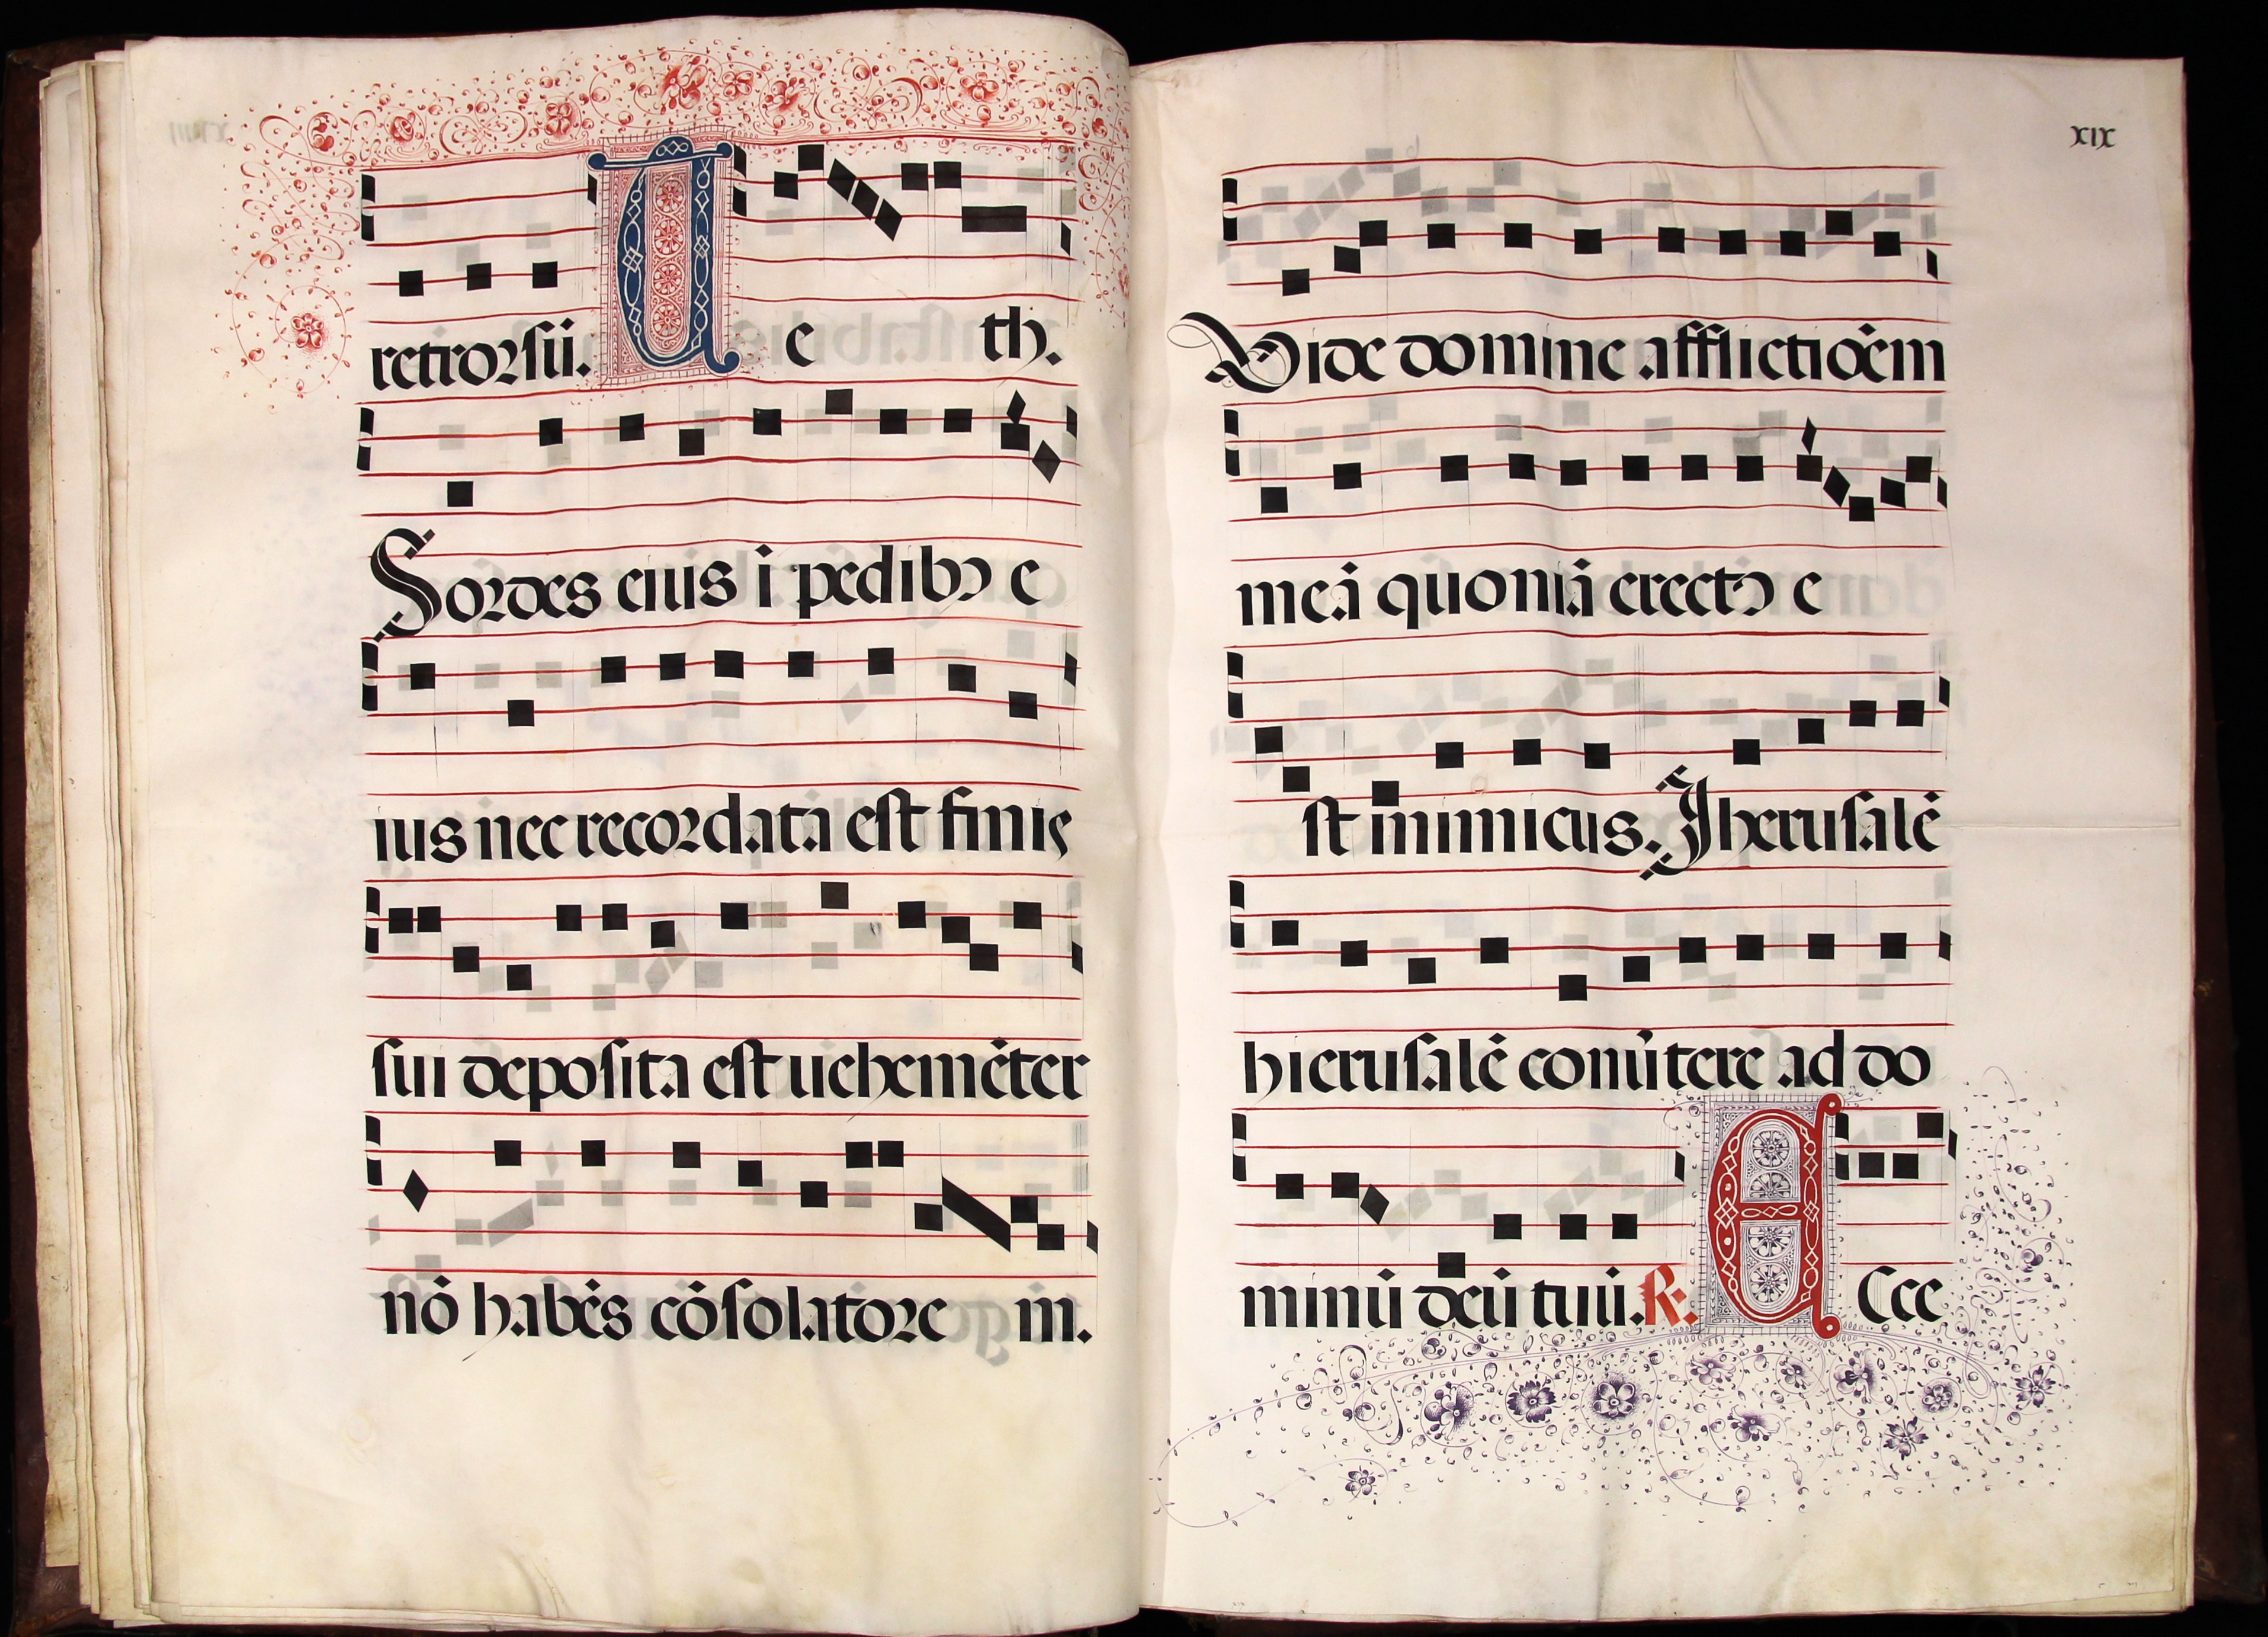 retrorsū. U e th.
Sordes eius ī pedibꝰ e
ius nec recordata est finis
sui deposita est uehemēter
nō habēs cōsolatore m.
XIX
Vide domine afflictiōem
meā quoniā erectꝰ e
st inimicus. Jherusalē
hierusalē conūtere ad do
minū deū tuū. R. A Ecce